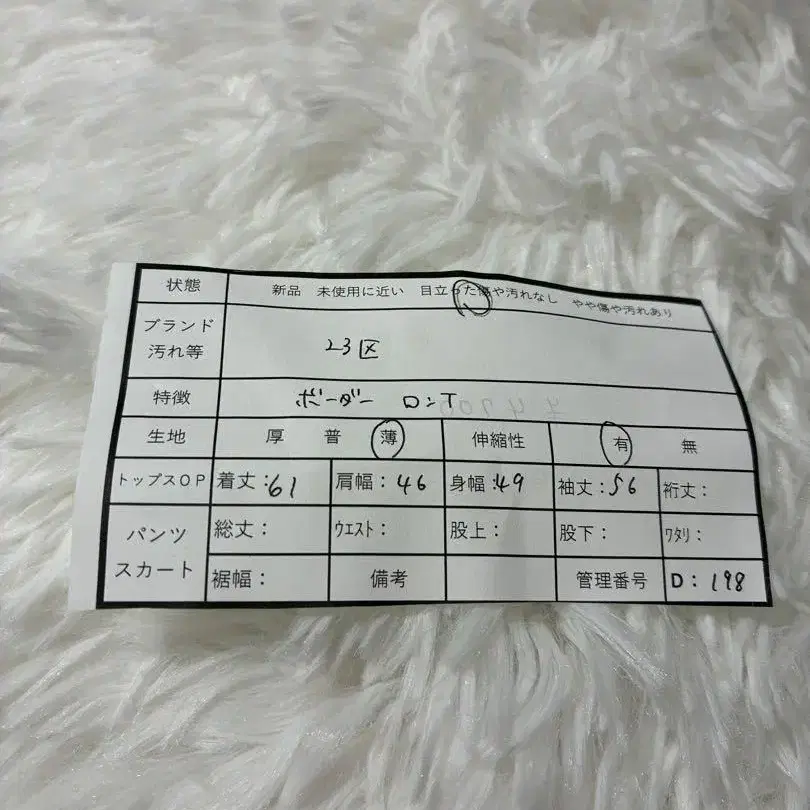 状態 新品 未使用に近い 目立った傷や汚れなし やや傷や汚れあり
ブランド 汚れ等 23区
特徴 ボーダー ロンT
生地 厚 普 薄 伸縮性 有 無
トップスOP 着丈:61 肩幅:46 身幅:49 袖丈:56 裄丈:
パンツ スカート 総丈: ウエスト: 股上: 股下: ワタリ:
裾幅: 備考 管理番号 D:198